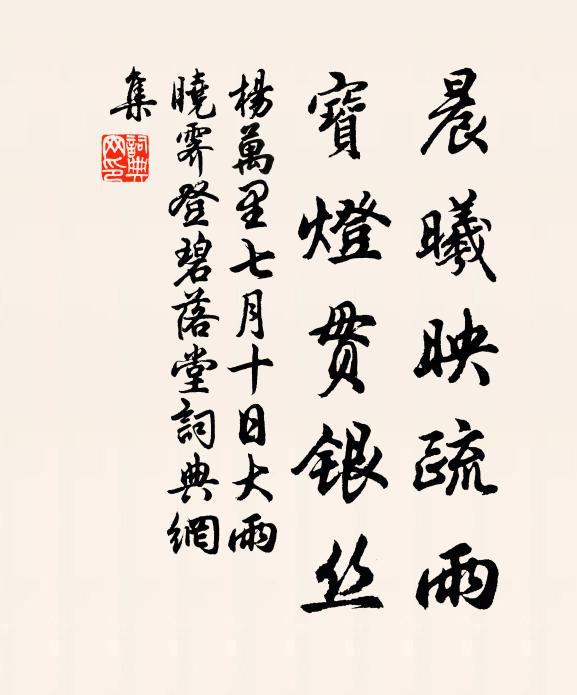 晨曦映疏雨
寶燈貫銀丝
楊萬里七月十日大雨
曉霽登碧落堂詞典網
集
詞典
网印